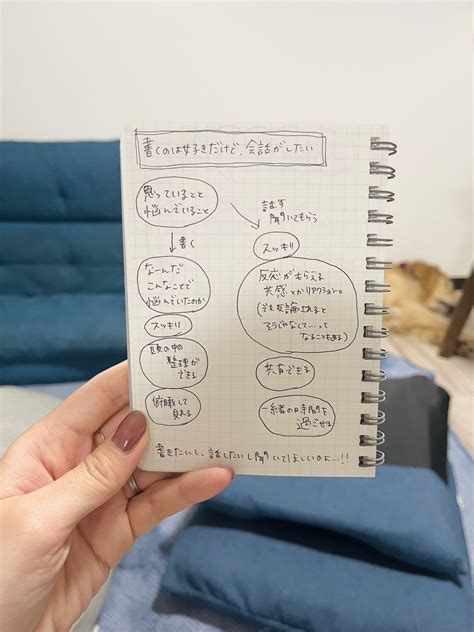 書くのは好きだけど、会話がしたい
思っていること
悩んでいること
書く
なーんだ
こんなことで
悩んでいたのか
スッキリ
頭の中の
整理が
できる
俯瞰して
見れる
話す
聞いてもらう
スッキリ
反応がもらえる
共感とかリアクション。
(でも反論されると
そうじゃなくて…って
なることもある)
共有できる
一緒の時間を
過ごせる
書きたいし、話したいし聞いてほしいのよ…!!